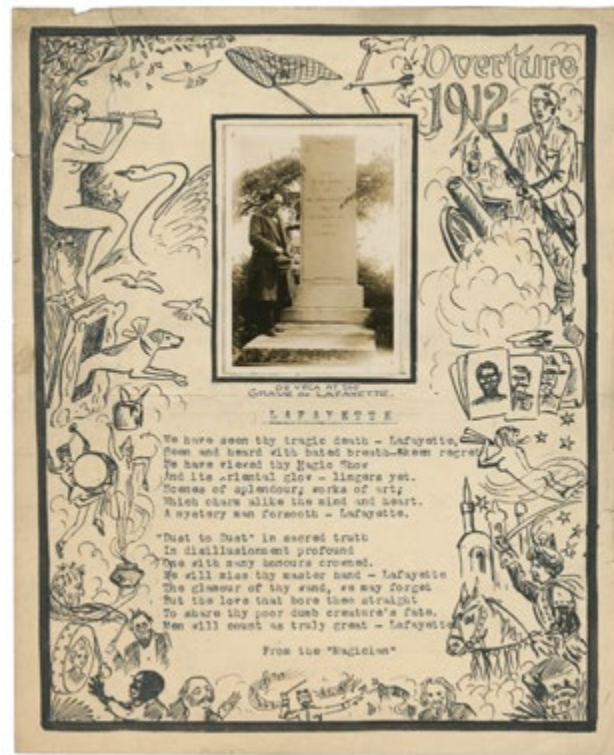 Overture
1912
DE VEGA AT THE
GRAVE OF LAFAYETTE.
LAFAYETTE
We have seen thy tragic death - Lafayette,
Seen and heard with bated breath-Skeem regret
We have viewed thy Magic Show
And its oriental glow - lingers yet.
Scenes of splendour; works of art;
Which charm alike the mind and heart.
A mystery man forsooth - Lafayette.
"Dust to Dust" in sacred truth
In disillusionment profound
One with many honours crowned.
We will miss thy master hand - Lafayette
The glamour of thy wand, we may forget
But the love that bore thee straight
To share thy poor dumb creature's fate.
Men will count as truly great - Lafayette
From the "Magician"